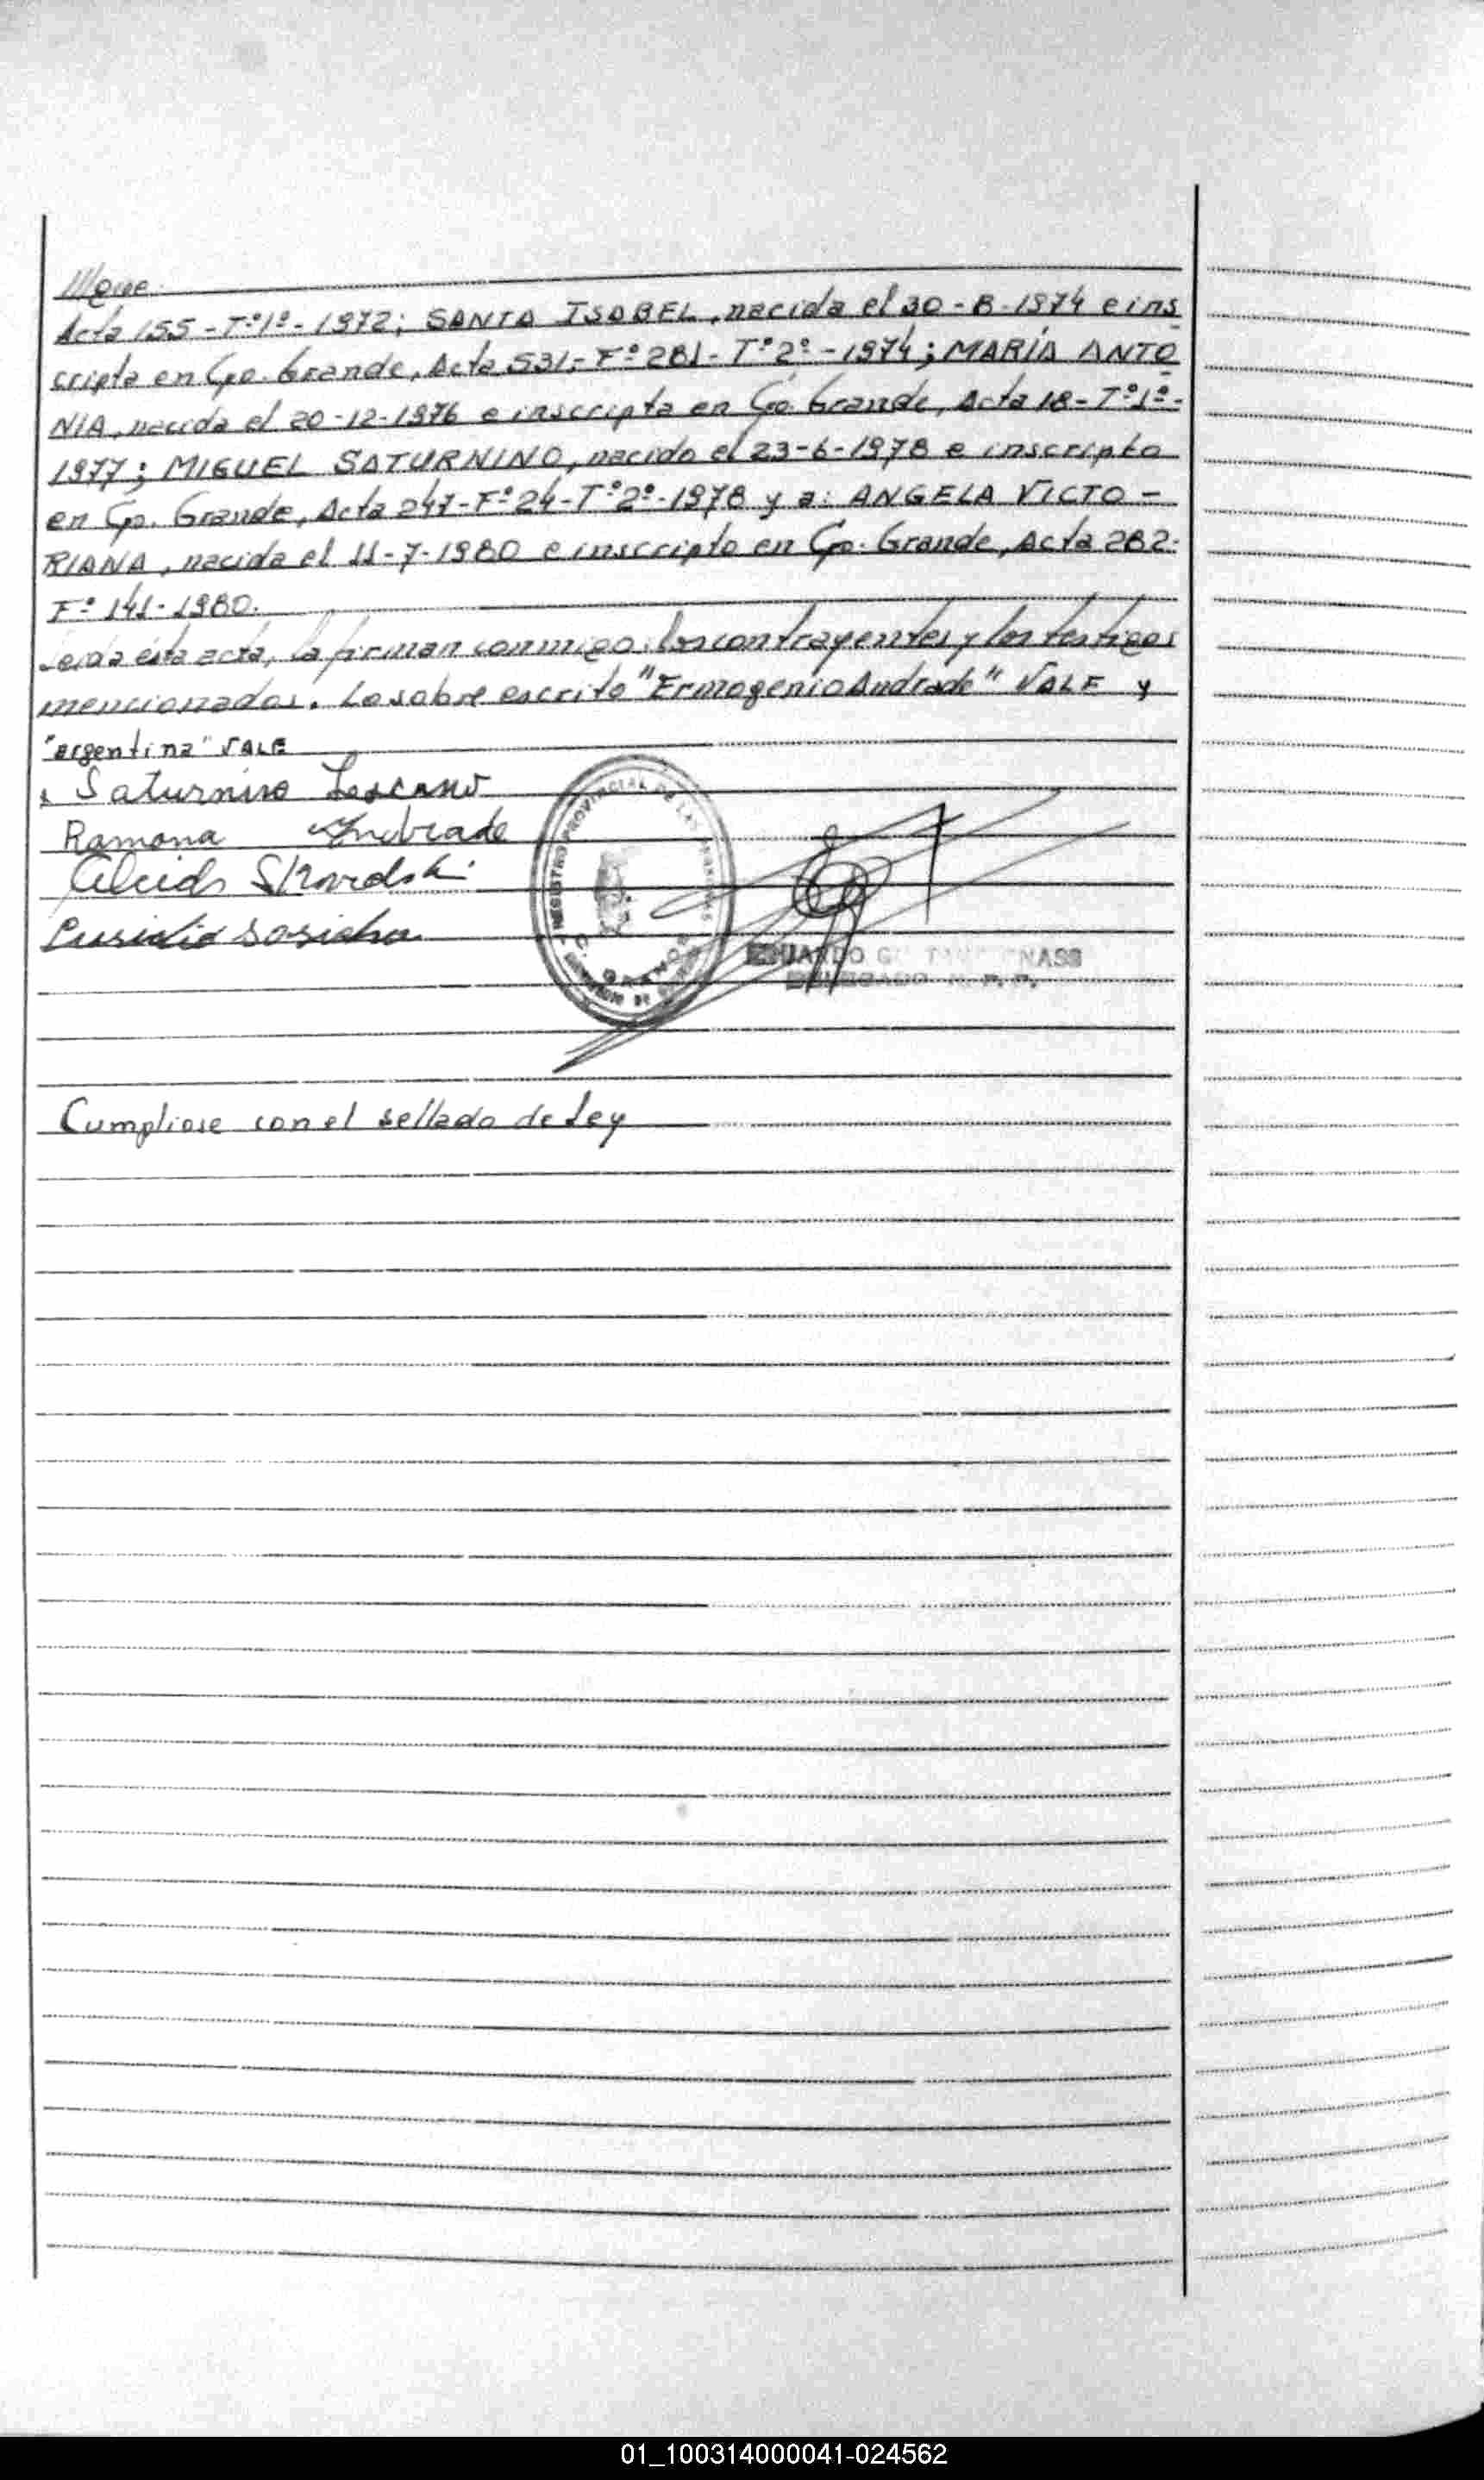 ///Gue.
Acta 155-Tº1º-1972; SANTA ISABEL, nacida el 30-8-1974 e ins
cripta en Cpo. Grande, Acta 531-Fº281-Tº2º-1974; MARÍA ANTO
NIA, nacida el 20-12-1976 e inscripta en Cpo. Grande, Acta 18-Tº1º-
1977; MIGUEL SATURNINO, nacido el 23-6-1978 e inscripto
en Cpo. Grande, Acta 247-Fº24-Tº2º-1978 y a: ANGELA VICTO-
RIANA, nacida el 11-7-1980 e inscripto en Cpo. Grande, Acta 282-
Fº 141-1980.
Leida ésta acta, la firman conmigo, los contrayentes y los testigos
mencionados. Lo sobre escrito "Ermogenio Andrade" VALE y
"argentina" VALE
Saturnino Lescano
Ramona Andrade
REGISTRO PROVINCIAL DE LAS PERSONAS
EDUARDO
DELEGADO R. P. P.
Cumpliose con el sellado de Ley
01_100314000041-024562